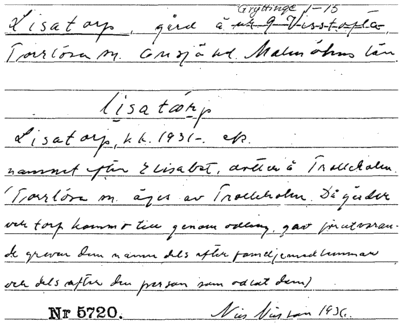 Gryttinge 1-15
Lisatorp, gård å Visstofta,
Torrlösa sn. Onsjö hd. Malmöhus län.
Lisatorp
Lisatorp, k.k. 1931-. ek.
namnet efter Elisabet, å Trolleholm.
(Torrlösa sn. äges av Trolleholm. Då gårdar
och torp kommo till genom odling, gav
grevar dem namn dels efter familjemedlemmar
och dels efter den person som odlat dem)
Nr 5720. Nils Nilsson 1936.